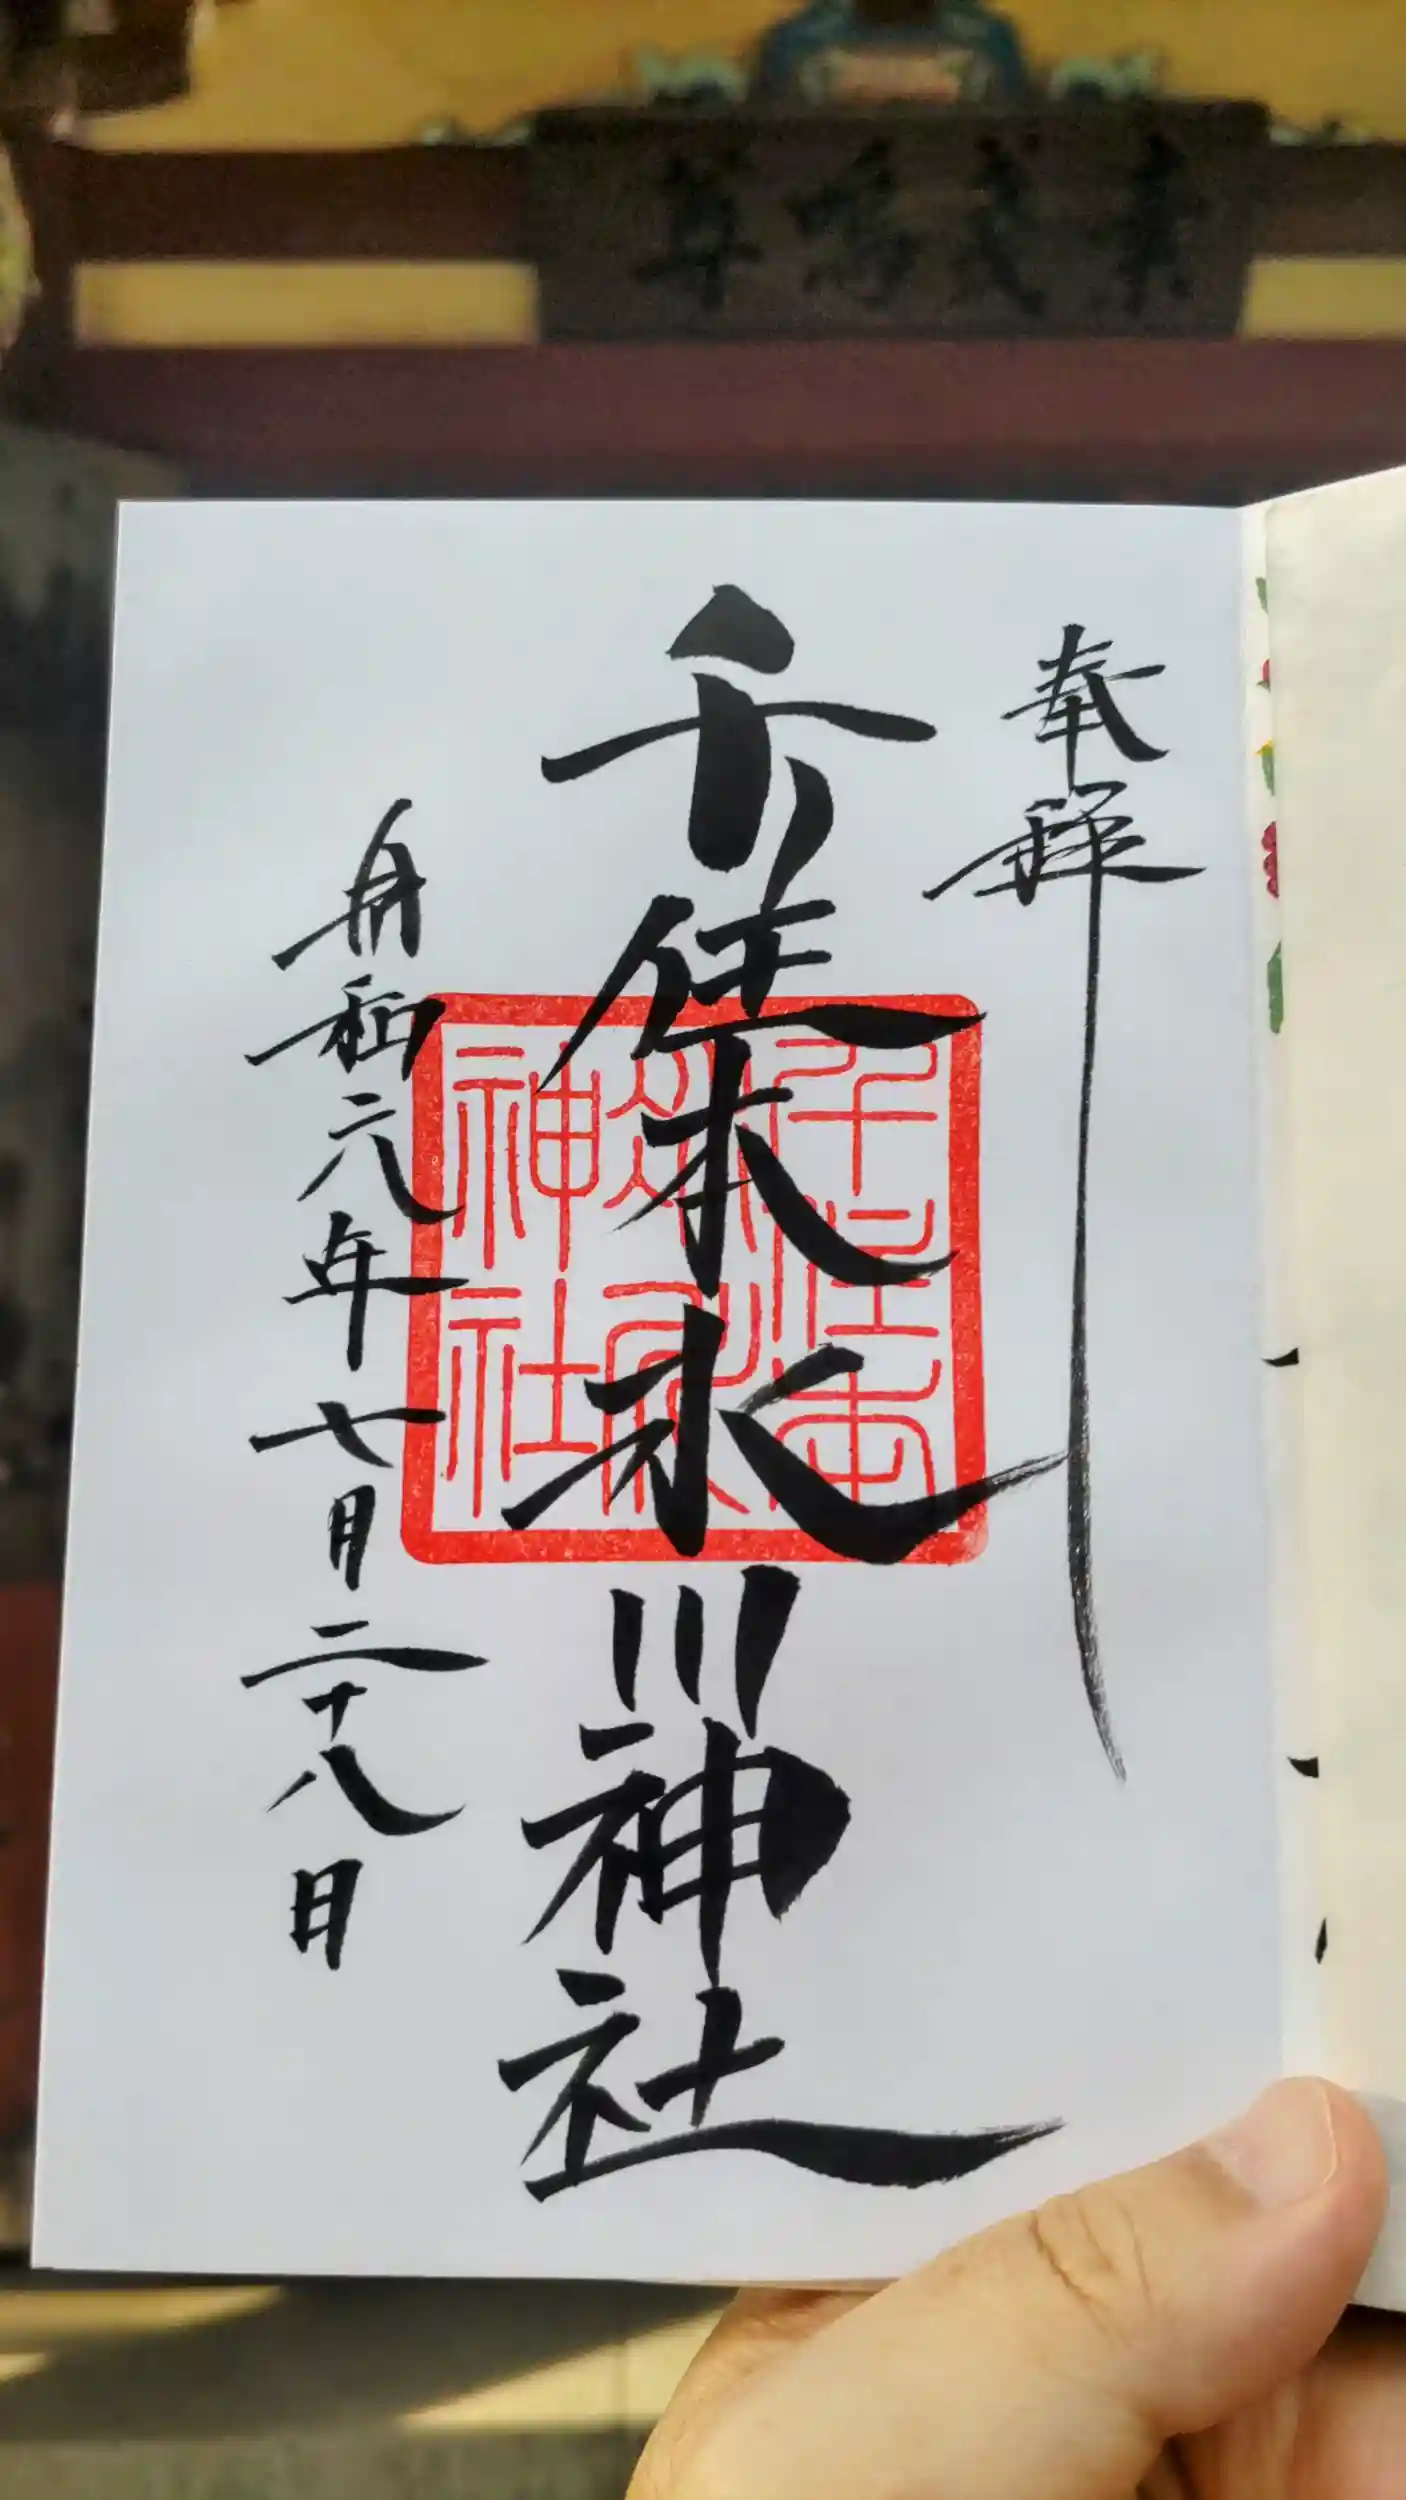 奉拝
千住本氷川神社
令和元年七月二十八日
千住本
氷川
神社